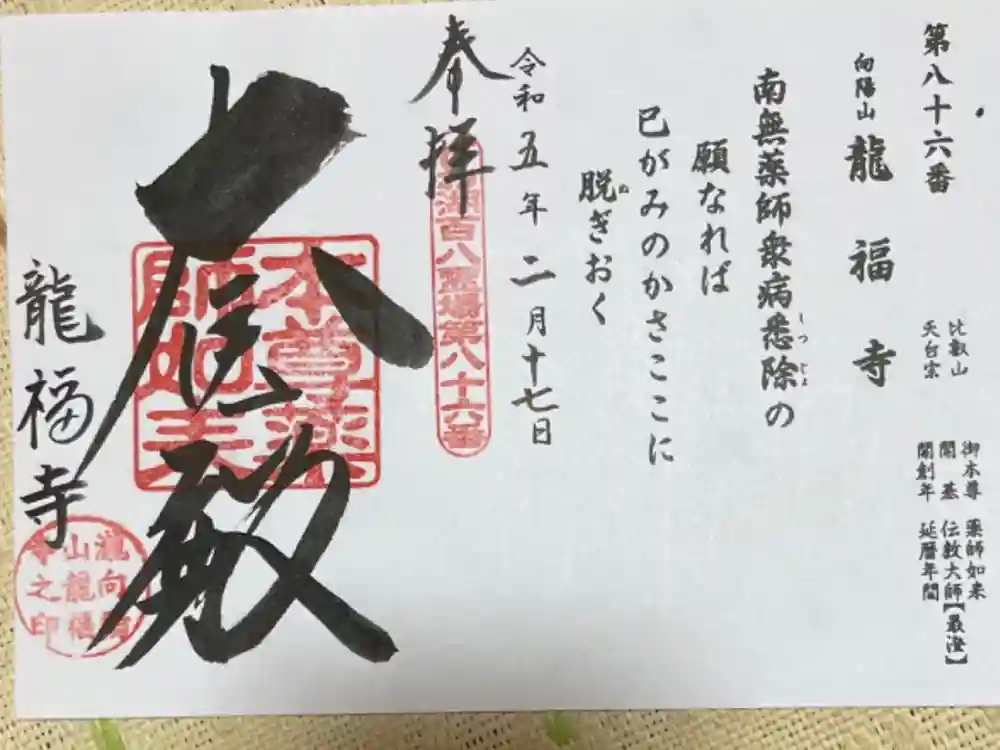 第八十六番
向陽山 龍福寺
比叡山
天台宗
御本尊 薬師如来
開基 伝教大師【最澄】
開創年 延暦年間
南無薬師衆病悉除の
しつ じよ
願なれば
已がみのかさここに
脱ぎおく
ぬ
令和五年二月十七日
奉拝
湖百八霊場第八十六番
医殿
本尊薬
師如来
龍福寺
山龍福
之印